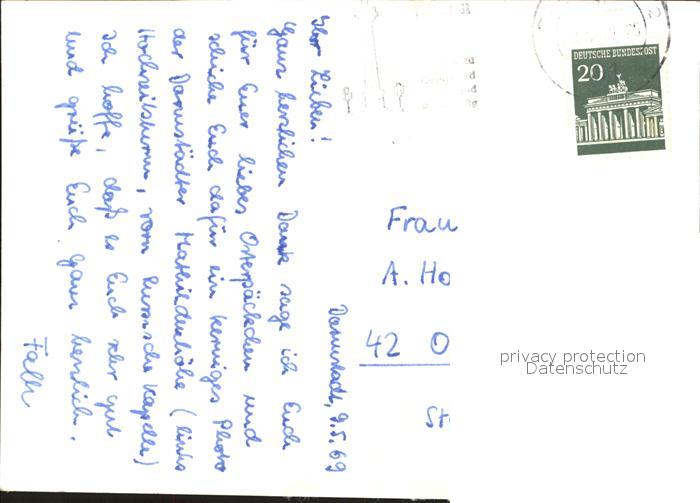 Darmstadt, 9.5.69
Ihr Lieben!
Ganz herzlichen Dank sage ich Euch
für Euer liebes Osterpäckchen und
schicke Euch dafür ein kerniges Photo
der Darmstädter Mathildenhöhe (links
Hochzeitsturm, vorn Russische Kapelle)
Ich hoffe, daß es Euch sehr gut
und grüße Euch ganz herzlich.
Falk
DEUTSCHE BUNDESPOST
20
Frau
A. Ho
42 O
St
privacy protection
Datenschutz